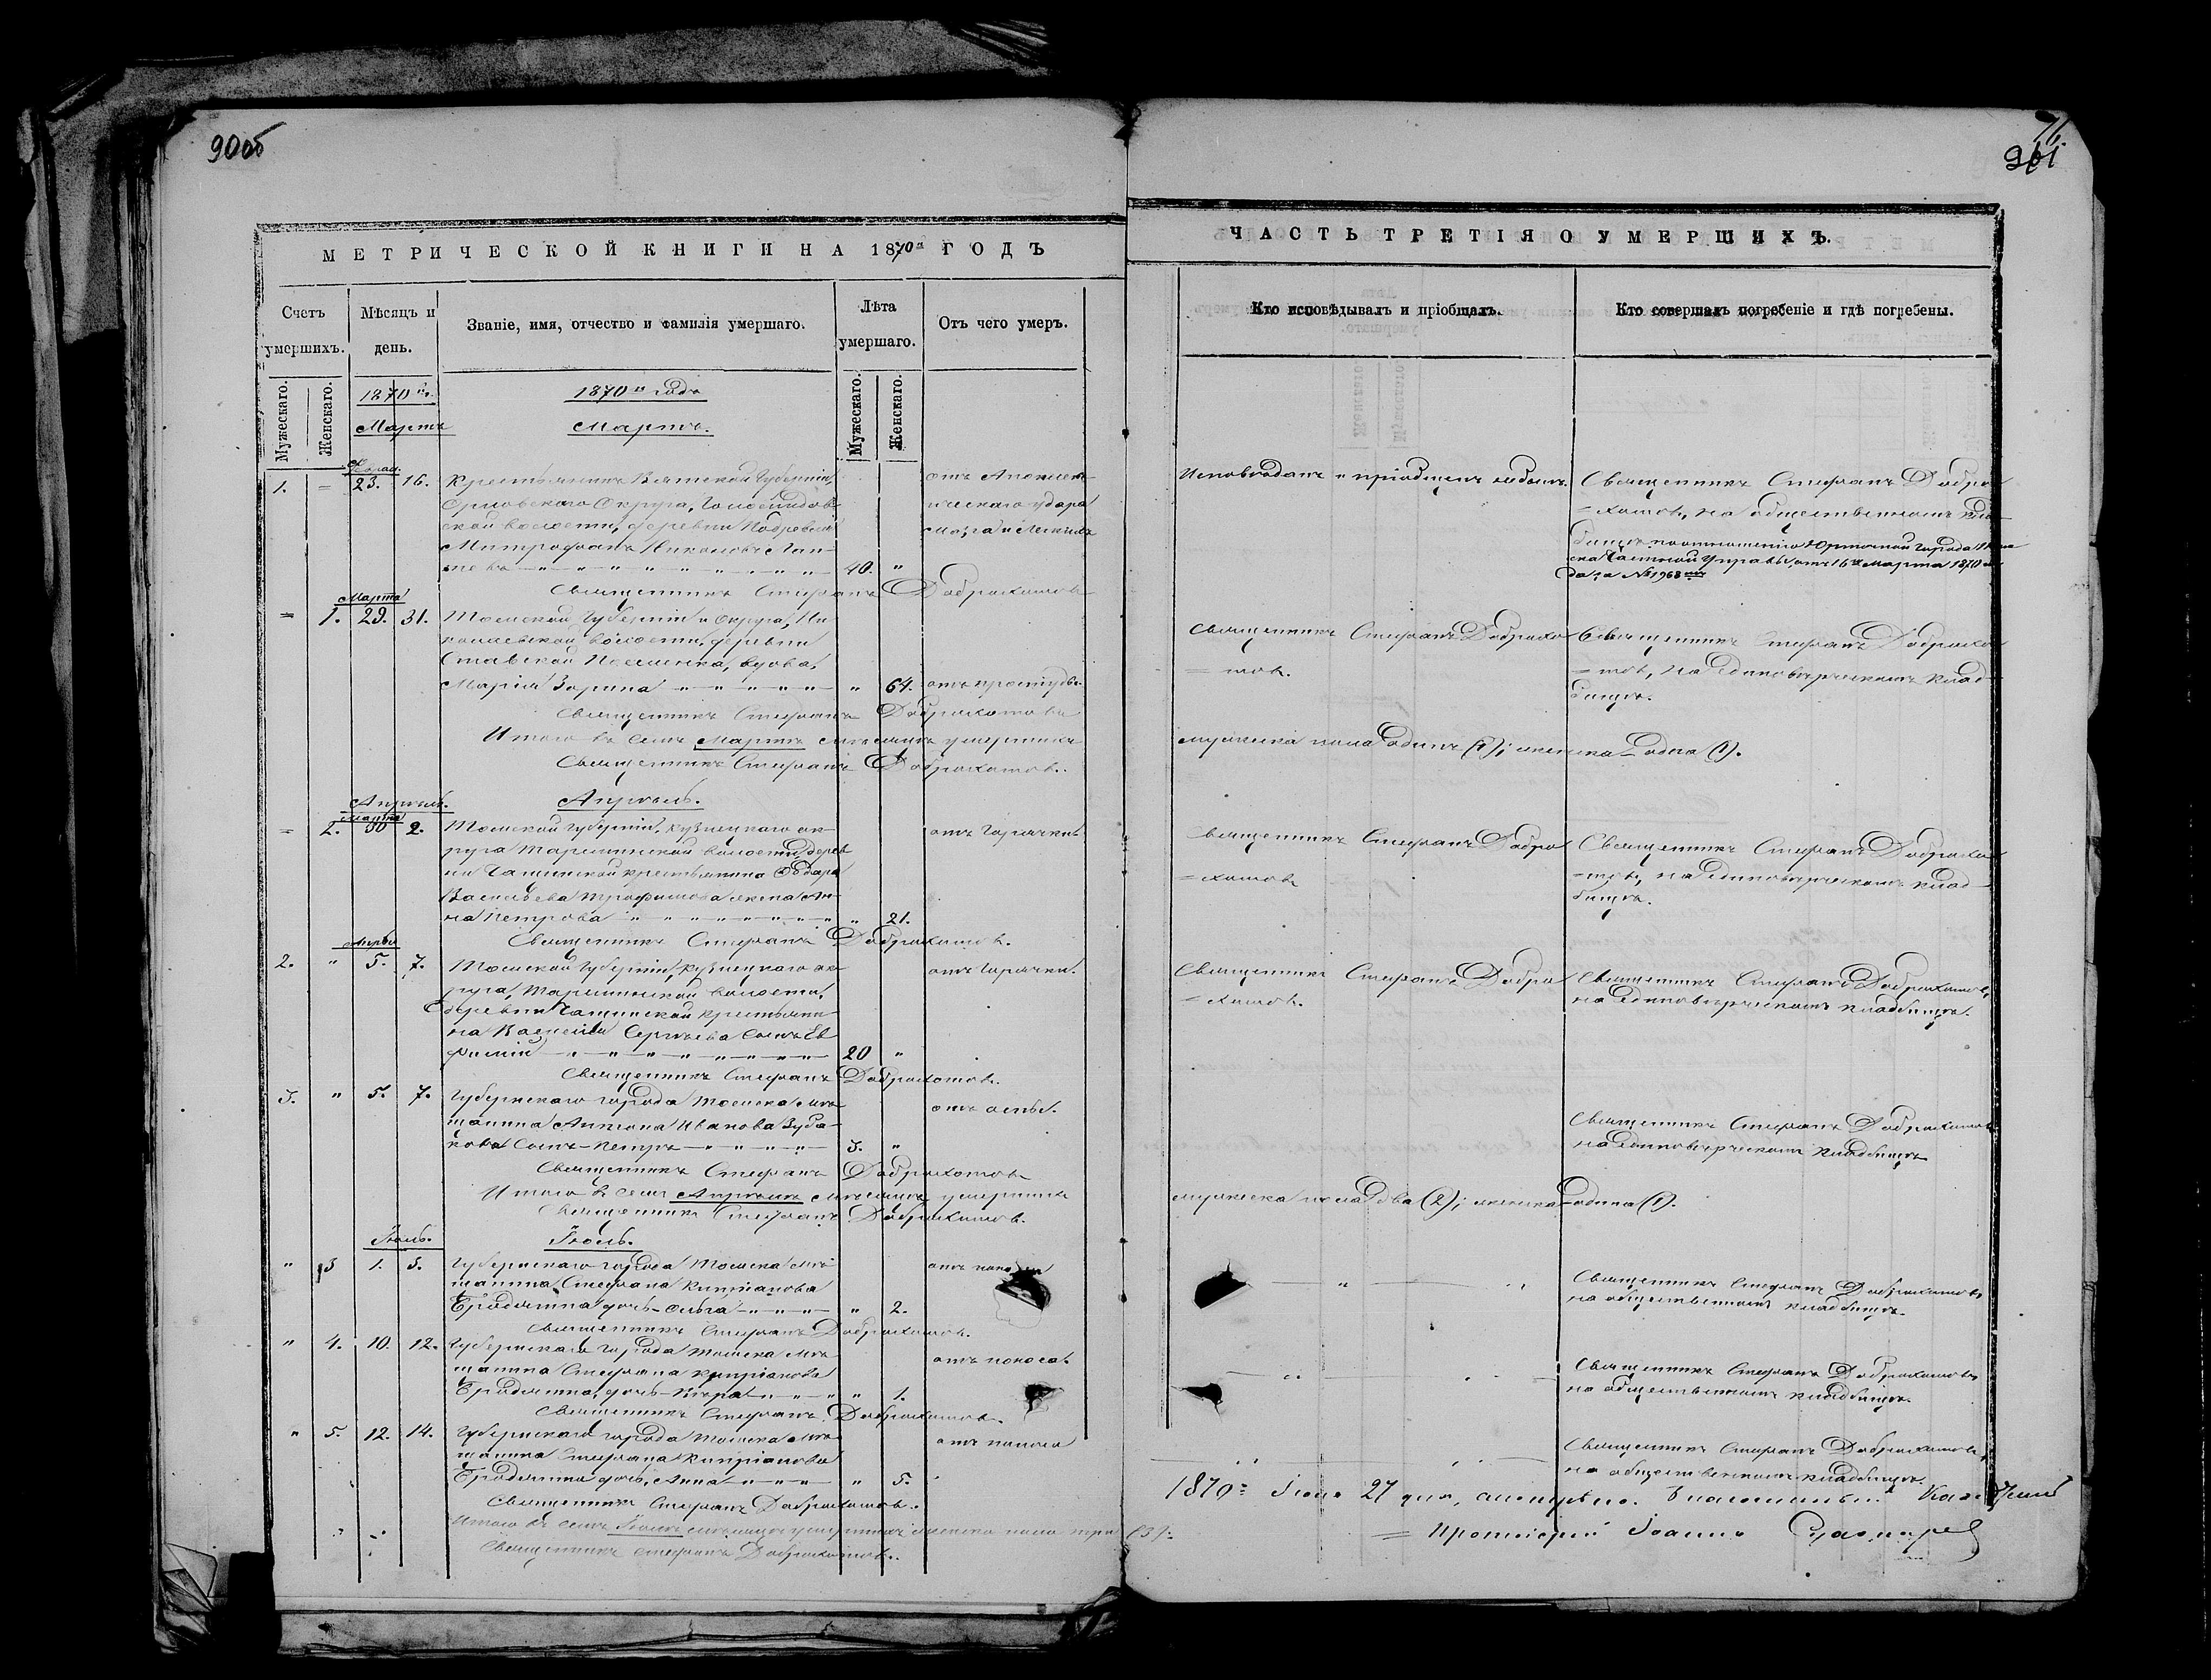 90об
МЕТРИЧЕСКОЙ КНИГИ НА 1870й ГОДЪ
Счетъ умершихъ.
Мужескаго.
Женскаго.
Мѣсяцъ и день.
Званіе, имя, отчество и фамилія умершаго.
Лѣта умершаго.
Мужескаго.
Женскаго.
Отъ чего умеръ.
1870
Мартъ
1870 года
Мартъ.
1. = 23. 16. Крестьянинъ Вятской Губерніи,
Орловскаго Округа,
ской волости, деревни
Митрофанъ Николовъ Лап-
40. "
отъ Апоплек-
ческаго удара
Священникъ Стефанъ Доброхотовъ
Марта
= 1. 29. 31. Томской Губерніи и Округа, Ни-
колаевской волости, деревни
вдова,
Марія Зорина " 64. отъ простуды.
Священникъ Стефанъ Доброхотовъ
Итого въ семъ Мартѣ мѣсяцѣ умершихъ
Священникъ Стефанъ Доброхотовъ.
Апрѣль.
Апрѣль.
Марта
= 2. 30 2. Томской Губерніи, Кузнецкаго ок-
руга Тарсминской волости, дерев
ни крестьянина
Васильева Трофимова жена Ан-
на Петрова " 21.
отъ горячки
Священникъ Стефанъ Доброхотовъ.
2. " 5. 7. Томской Губерніи, Кузнецкаго ок-
руга, Тарсминской волости,
деревни крестьяни-
на Сергѣева сынъ Ев-
фимій 20 "
отъ горячки.
Священникъ Стефанъ Доброхотовъ.
3. " 5. 7. Губернскаго города Томска мѣ-
щанина Ивана Зуба-
кова сынъ Петръ 3. "
отъ оспы.
Священникъ Стефанъ Доброхотовъ
Итого въ семъ Апрѣлѣ мѣсяцѣ умершихъ
Священникъ Стефанъ Доброхотовъ.
Іюнь.
Іюнь.
" 3 1. 3. Губернскаго города Томска мѣ-
щанина Стефана Кипріанова
дочь Ольга " 2.
Священникъ Стефанъ Доброхотовъ.
" 4. 10. 12. Губернскаго города Томска мѣ-
щанина Стефана Кипріанова
дочь Вѣра " 1.
отъ поноса.
Священникъ Стефанъ Доброхотовъ.
" 5. 12. 14. Губернскаго города Томска мѣ-
щанина Стефана Кипріанова
дочь, Анна " 5.
отъ поноса
Священникъ Стефанъ Доброхотовъ.
Итого въ семъ Іюнѣ мѣсяцѣ умершихъ женска пола три (3).
Священникъ Стефанъ Доброхотовъ.
ЧАСТЬ ТРЕТІЯ О УМЕРШИХЪ.
Кто исповѣдывалъ и пріобщалъ.
Кто совершалъ погребеніе и гдѣ погребены.
Исповѣданъ и пріобщенъ
Священникъ Стефанъ Добро
=хотовъ, на общественномъ клад-
бищѣ по отношенію города
Частной Управы, отъ 16 Марта 1870
да за № 1968
Священникъ Стефанъ Доброхо
=товъ.
Священникъ Стефанъ Доброхо
=товъ, на единовѣрческомъ клад-
бищѣ.
мужеска пола одинъ (1); женска одна (1).
Священникъ Стефанъ Добро
=хотовъ
Священникъ Стефанъ Доброхо
=товъ, на единовѣрческомъ клад-
бищѣ.
Священникъ Стефанъ Добро
=хотовъ.
Священникъ Стефанъ Доброхотовъ,
на единовѣрческомъ кладбищѣ.
Священникъ Стефанъ Доброхотовъ
на единовѣрческомъ кладбищѣ
мужеска пола два (2); женска одна (1).
Священникъ Стефанъ Доброхотовъ,
на общественномъ кладбищѣ.
Священникъ Стефанъ Доброхотовъ,
на общественномъ кладбищѣ.
Священникъ Стефанъ Доброхотовъ,
на общественномъ кладбищѣ.
1870 Іюня 27 дня, Благочинный
Протоіерей Іоаннъ